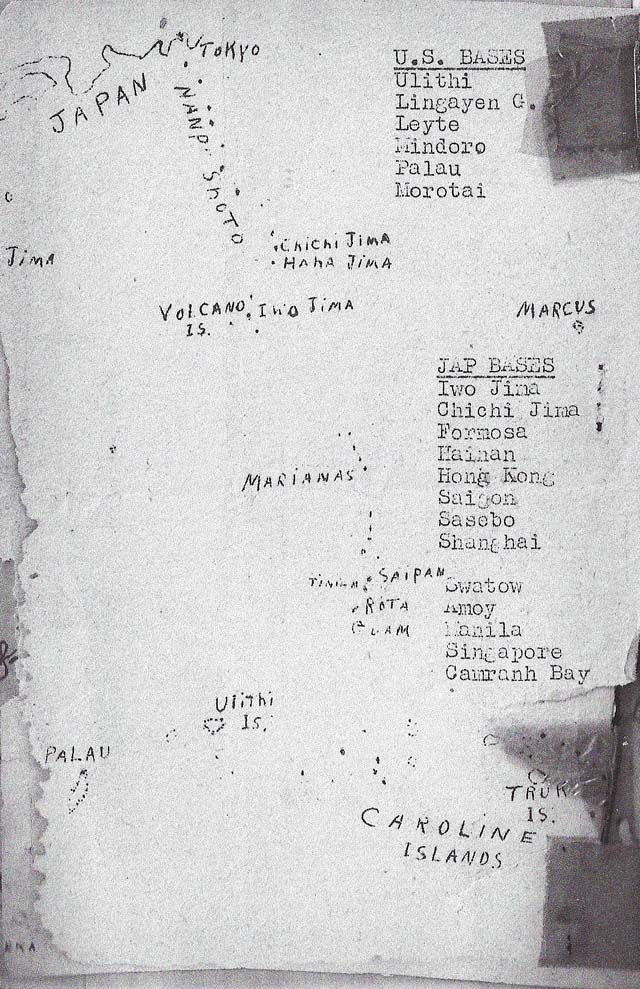 TOKYO
JAPAN
NANPO SHOTO
U.S. BASES
Ulithi
Lingayen G.
Leyte
Mindoro
Palau
Morotai
JIMA
CHICHI JIMA
HAHA JIMA
VOLCANO
IS.
IWO JIMA
MARCUS
JAP BASES
Iwo Jima
Chichi Jima
Formosa
Hainan
Hong Kong
Saigon
Sasebo
Shanghai
Swatow
Amoy
Manila
Singapore
Camranh Bay
MARIANAS
TINIAN
SAIPAN
ROTA
GUAM
Ulithi
IS.
PALAU
TRUK
IS.
CAROLINE
ISLANDS